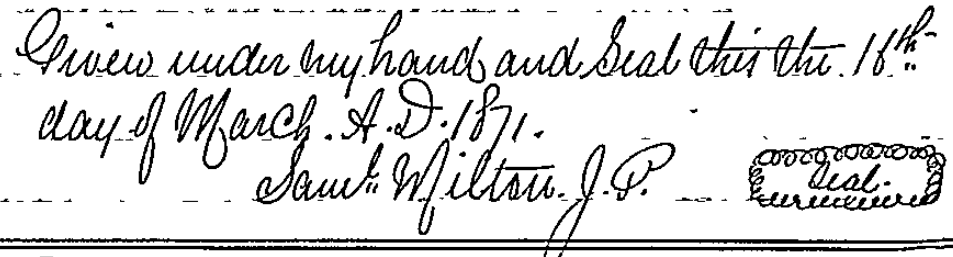 Given under my hand and Seal this the 16th
day of March. A.D. 1871.
Saml. Milton. J.P. Seal.